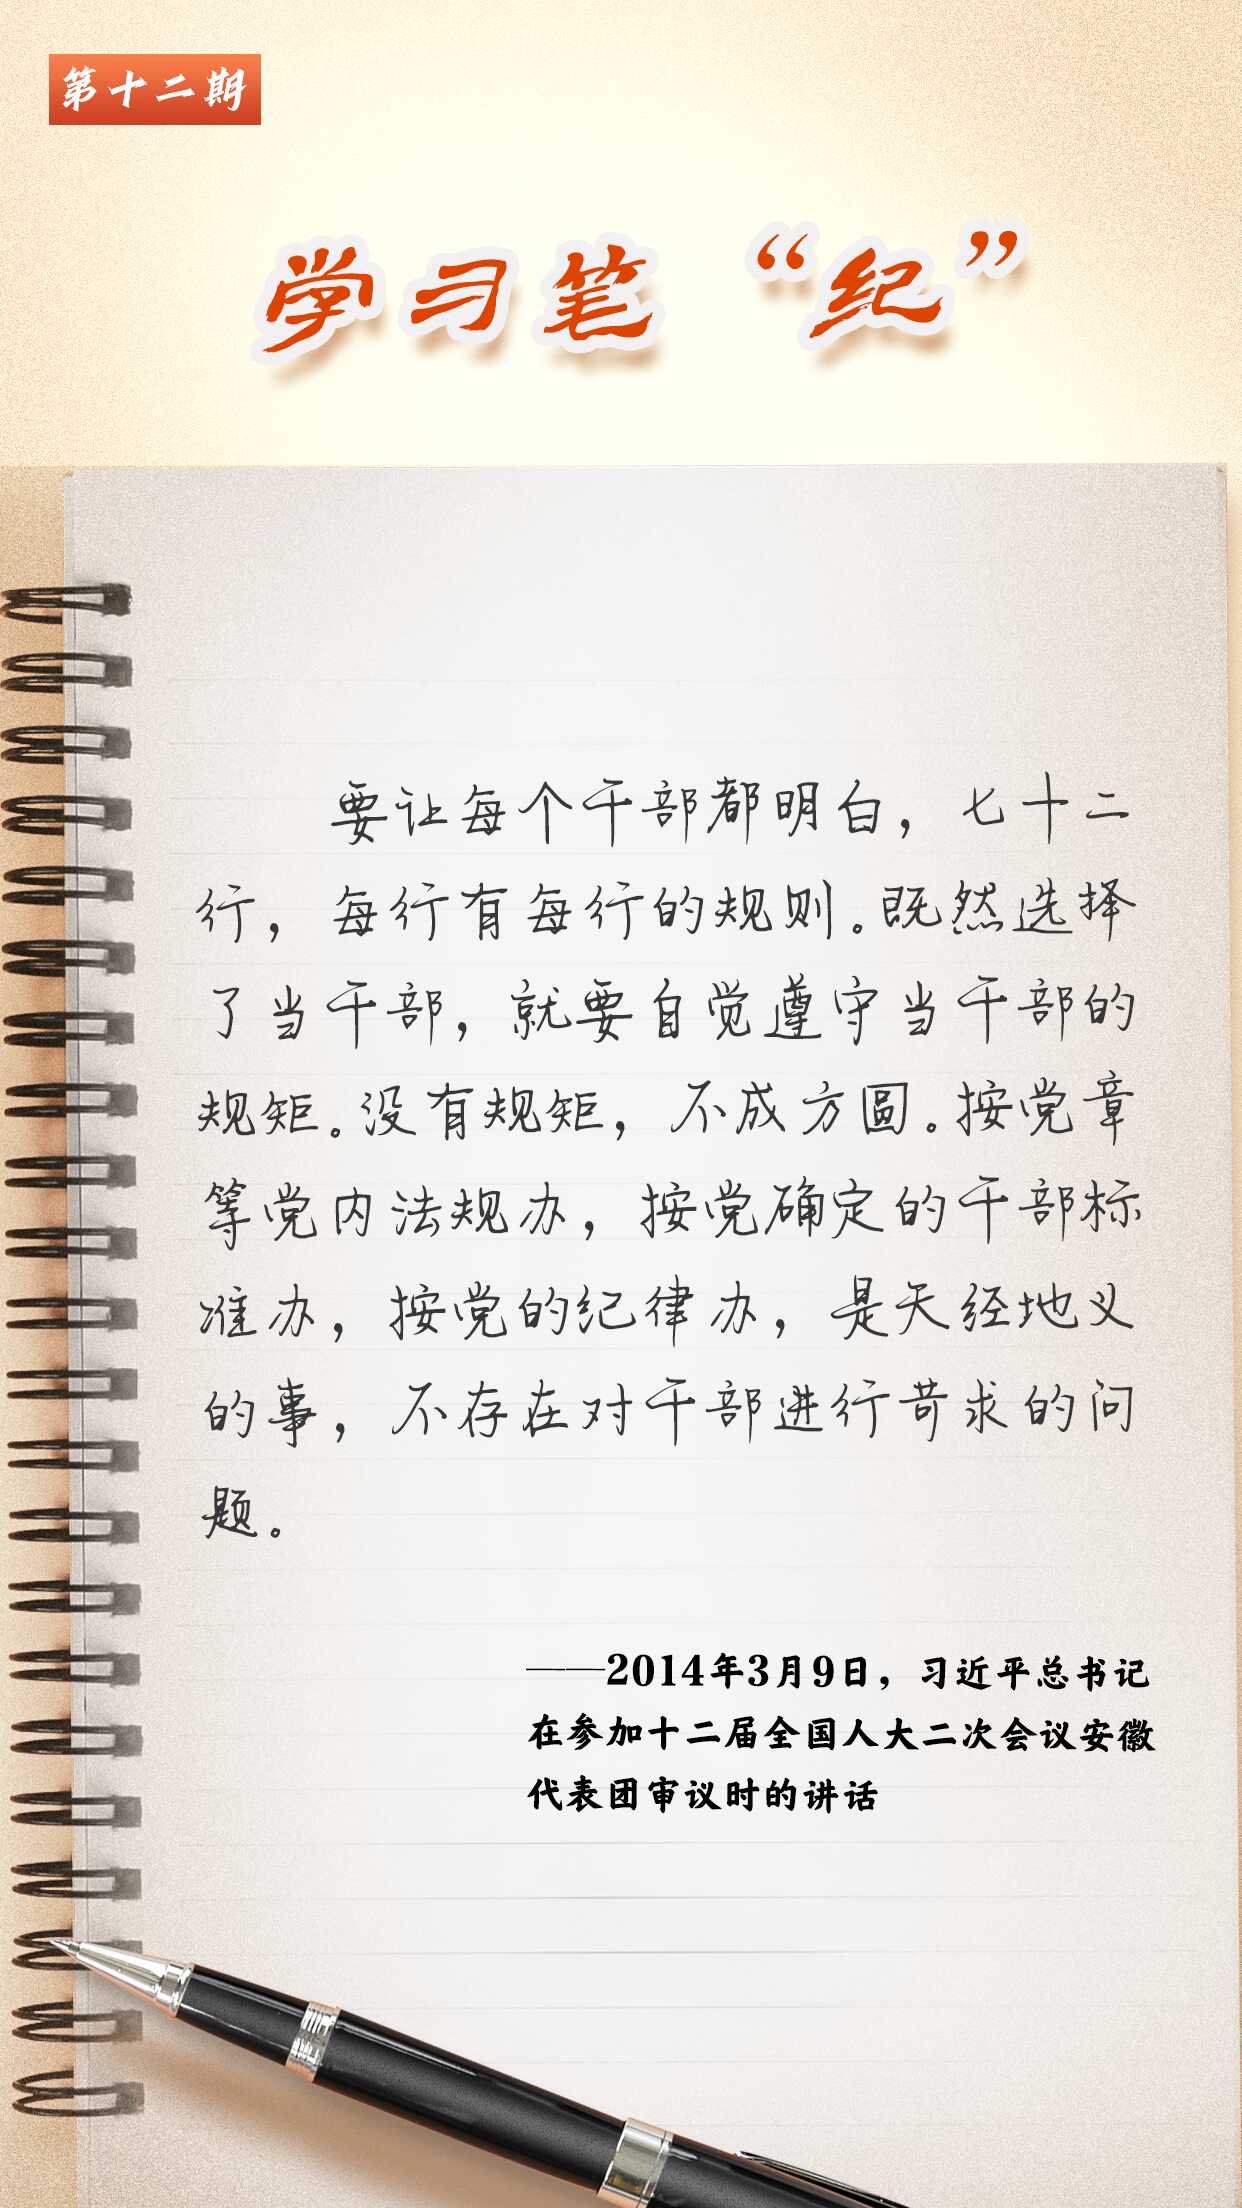 第十二期
学习笔“纪”
要让每个干部都明白，七十二
行，每行有每行的规则。既然选择
了当干部，就要自觉遵守当干部的
规矩。没有规矩，不成方圆。按党章
等党内法规办，按党确定的干部标
准办，按党的纪律办，是天经地义
的事，不存在对干部进行苛求的问
题。
——2014年3月9日，习近平总书记
在参加十二届全国人大二次会议安徽
代表团审议时的讲话